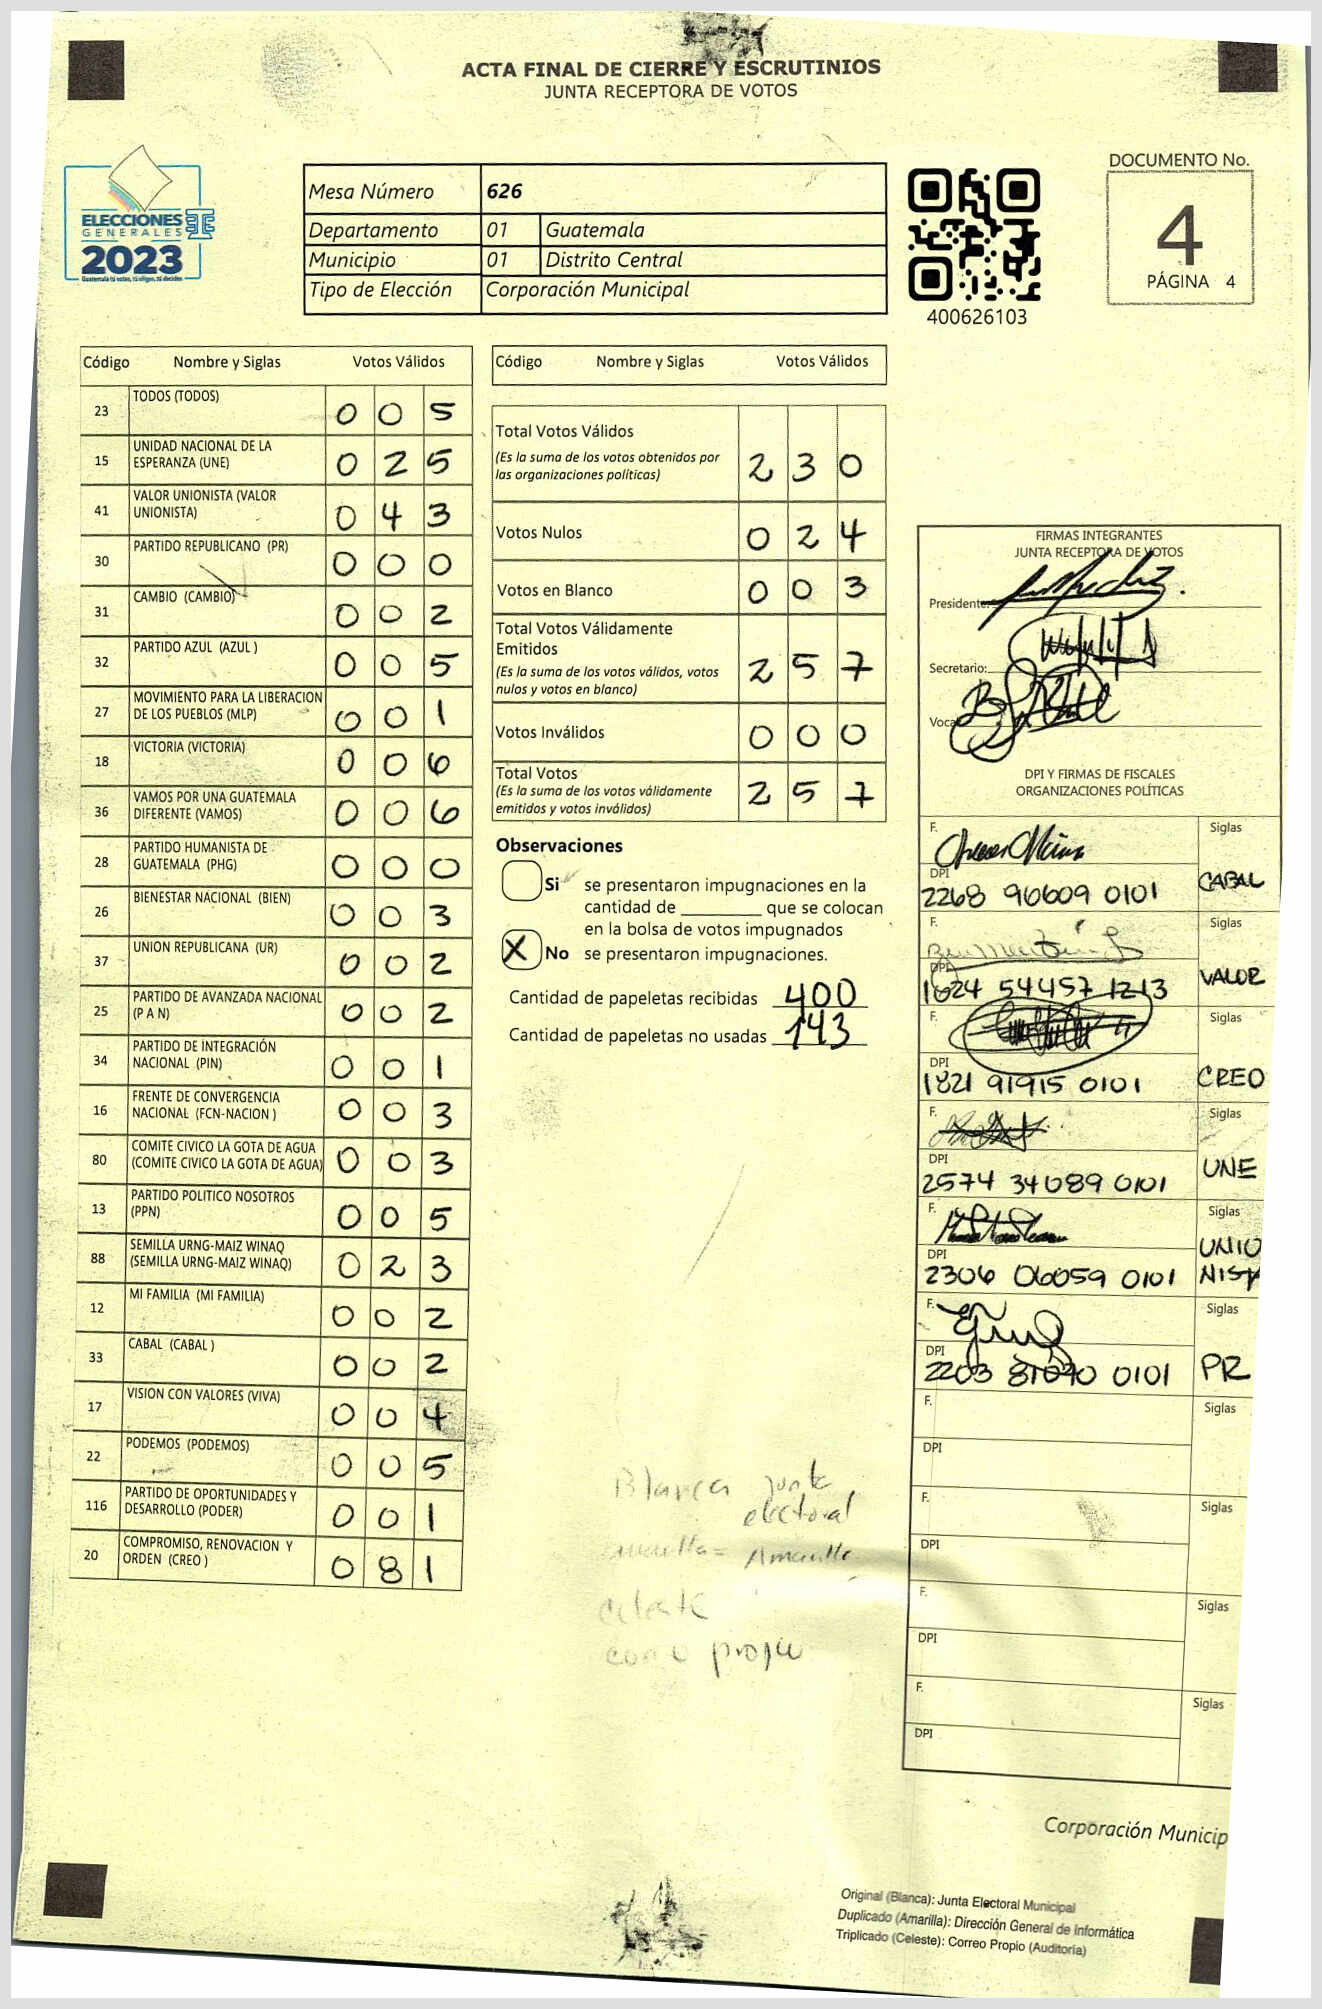 ACTA FINAL DE CIERRE Y ESCRUTINIOS
JUNTA RECEPTORA DE VOTOS
ELECCIONES
GENERALES
2023
Guatemala tú votas, tú eliges, tú decides
Mesa Número 626
Departamento 01 Guatemala
Municipio 01 Distrito Central
Tipo de Elección Corporación Municipal
400626103
DOCUMENTO No.
4
PÁGINA 4
Código Nombre y Siglas Votos Válidos
23 TODOS (TODOS) 0 0 5
15 UNIDAD NACIONAL DE LA
ESPERANZA (UNE) 0 2 5
41 VALOR UNIONISTA (VALOR
UNIONISTA) 0 4 3
30 PARTIDO REPUBLICANO (PR) 0 0 0
31 CAMBIO (CAMBIO) 0 0 2
32 PARTIDO AZUL (AZUL ) 0 0 5
27 MOVIMIENTO PARA LA LIBERACION
DE LOS PUEBLOS (MLP) 0 0 1
18 VICTORIA (VICTORIA) 0 0 6
36 VAMOS POR UNA GUATEMALA
DIFERENTE (VAMOS) 0 0 6
28 PARTIDO HUMANISTA DE
GUATEMALA (PHG) 0 0 0
26 BIENESTAR NACIONAL (BIEN) 0 0 3
37 UNION REPUBLICANA (UR) 0 0 2
25 PARTIDO DE AVANZADA NACIONAL
(P A N) 0 0 2
34 PARTIDO DE INTEGRACIÓN
NACIONAL (PIN) 0 0 1
16 FRENTE DE CONVERGENCIA
NACIONAL (FCN-NACION ) 0 0 3
80 COMITE CIVICO LA GOTA DE AGUA
(COMITE CIVICO LA GOTA DE AGUA) 0 0 3
13 PARTIDO POLITICO NOSOTROS
(PPN) 0 0 5
88 SEMILLA URNG-MAIZ WINAQ
(SEMILLA URNG-MAIZ WINAQ) 0 2 3
12 MI FAMILIA (MI FAMILIA) 0 0 2
33 CABAL (CABAL ) 0 0 2
17 VISION CON VALORES (VIVA) 0 0 4
22 PODEMOS (PODEMOS) 0 0 5
116 PARTIDO DE OPORTUNIDADES Y
DESARROLLO (PODER) 0 0 1
20 COMPROMISO, RENOVACION Y
ORDEN (CREO ) 0 8 1
Código Nombre y Siglas Votos Válidos
Total Votos Válidos
(Es la suma de los votos obtenidos por
las organizaciones políticas) 2 3 0
Votos Nulos 0 2 4
Votos en Blanco 0 0 3
Total Votos Válidamente
Emitidos
(Es la suma de los votos válidos, votos
nulos y votos en blanco) 2 5 7
Votos Inválidos 0 0 0
Total Votos
(Es la suma de los votos válidamente
emitidos y votos inválidos) 2 5 7
Observaciones
Si se presentaron impugnaciones en la
cantidad de ________ que se colocan
en la bolsa de votos impugnados
X No se presentaron impugnaciones.
Cantidad de papeletas recibidas 400
Cantidad de papeletas no usadas 143
Blanca junta
electoral
Amarilla
celeste
propio
FIRMAS INTEGRANTES
JUNTA RECEPTORA DE VOTOS
Presidente:
Secretario:
Vocal
DPI Y FIRMAS DE FISCALES
ORGANIZACIONES POLÍTICAS
F. Siglas
DPI CABAL
2268 90609 0101
F. Siglas
DPI VALOR
1624 54457 1213
F. Siglas
DPI CREO
1821 91915 0101
F. Siglas
DPI UNE
2574 34089 0101
F. Siglas
DPI UNIO
2306 06059 0101 NISTA
F. Siglas
DPI PR
2203 81070 0101
F. Siglas
DPI
F. Siglas
DPI
F. Siglas
DPI
F. Siglas
DPI
Corporación Municip
Original (Blanca): Junta Electoral Municipal
Duplicado (Amarilla): Dirección General de Informática
Triplicado (Celeste): Correo Propio (Auditoría)